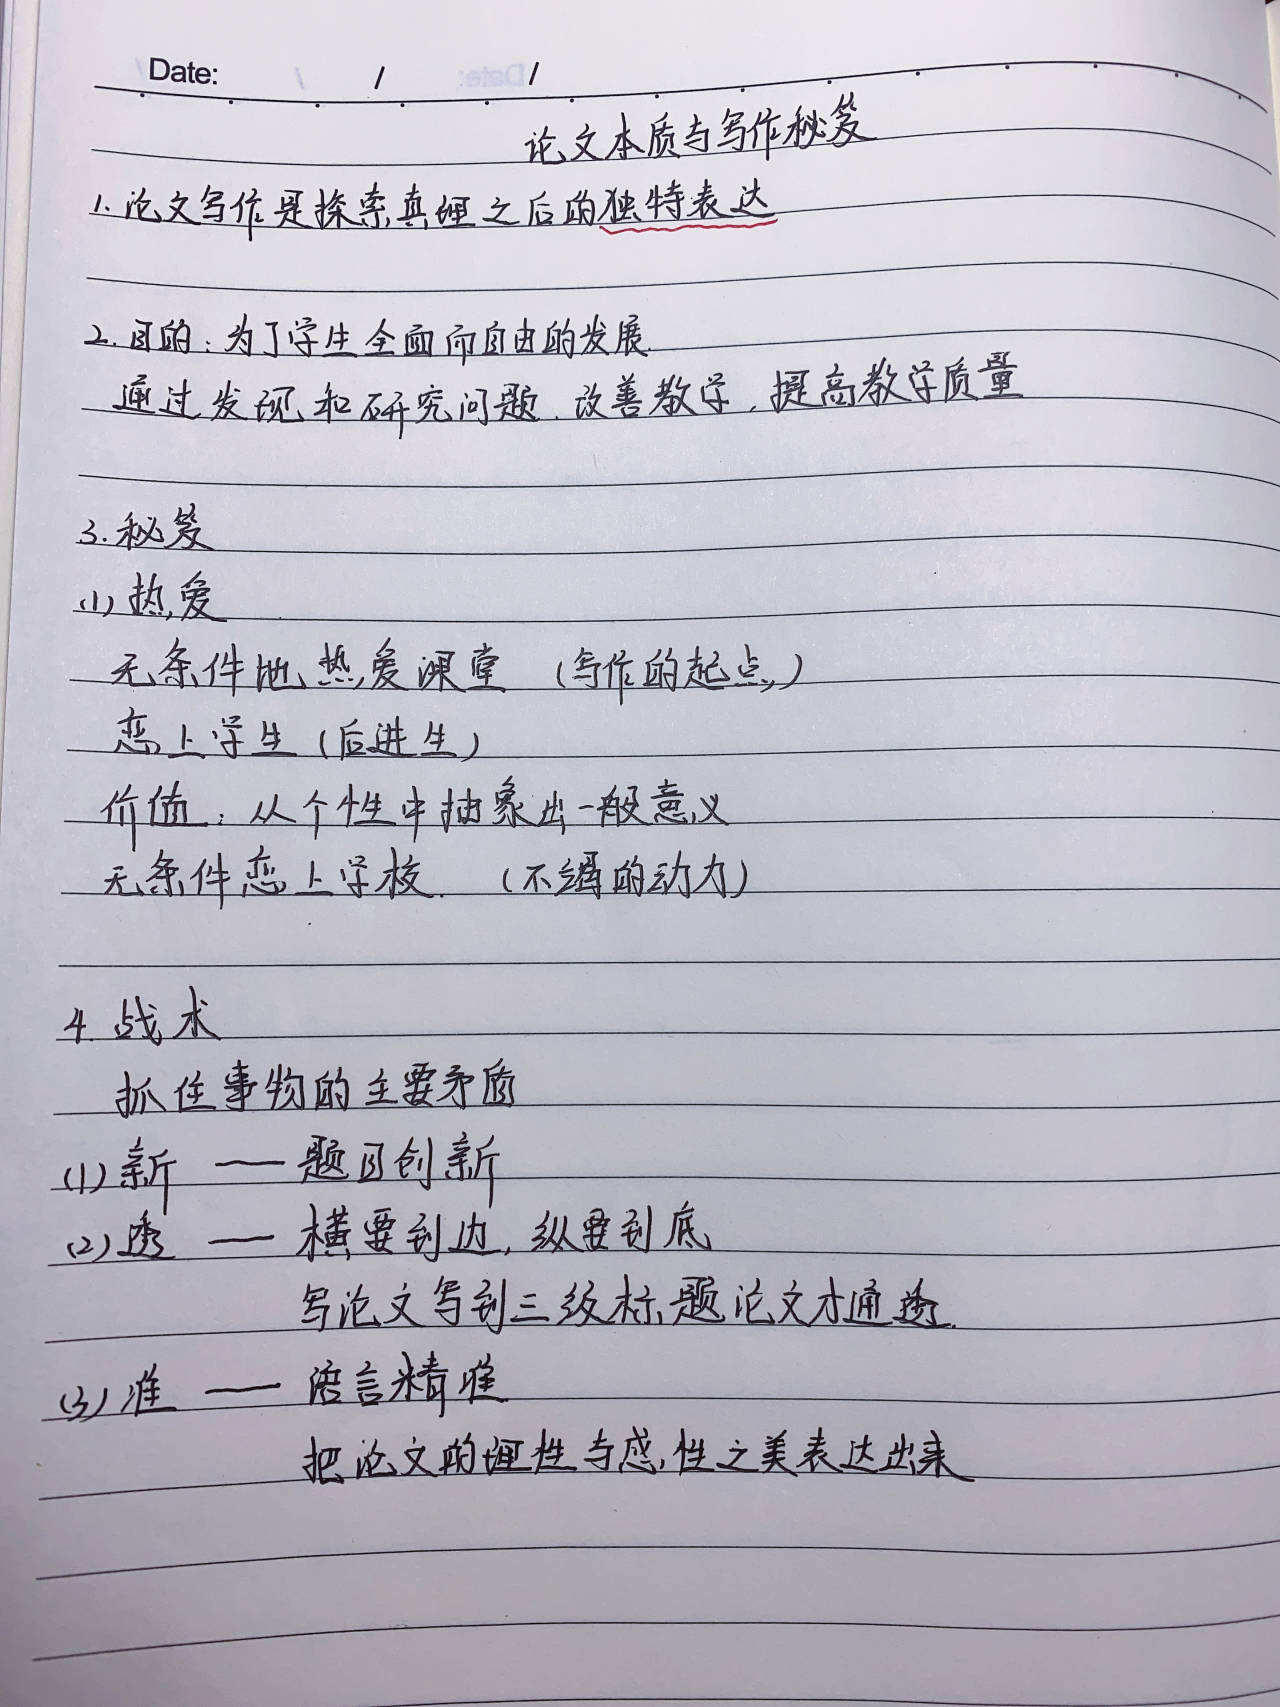 Date: / /
论文本质与写作秘笈
1. 论文写作是探索真理之后的独特表达
2. 目的：为了学生全面而自由的发展.
通过发现和研究问题.改善教学，提高教学质量
3. 秘笈
(1) 热爱
无条件地热爱课堂 (写作的起点)
恋上学生 (后进生)
价值：从个性中抽象出一般意义
无条件恋上学校. (不竭的动力)
4. 战术
抓住事物的主要矛盾
(1) 新 —— 题目创新
(2) 透 —— 横要到边，纵要到底
写论文写到三级标题论文才通透.
(3) 准 —— 语言精准
把论文的理性与感性之美表达出来